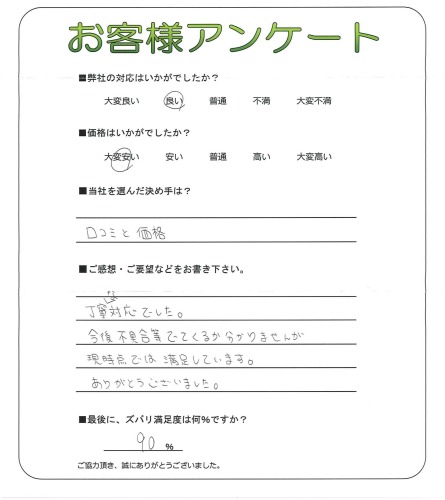 お客様アンケート
■弊社の対応はいかがでしたか？
大変良い 良い 普通 不満 大変不満
■価格はいかがでしたか？
大変安い 安い 普通 高い 大変高い
■当社を選んだ決め手は？
口コミと価格
■ご感想・ご要望などをお書き下さい。
丁寧な対応でした。
今後不具合等でてくるか分かりませんが
現時点では満足しています。
ありがとうございました。
■最後に、ズバリ満足度は何%ですか？
90 %
ご協力頂き、誠にありがとうございました。